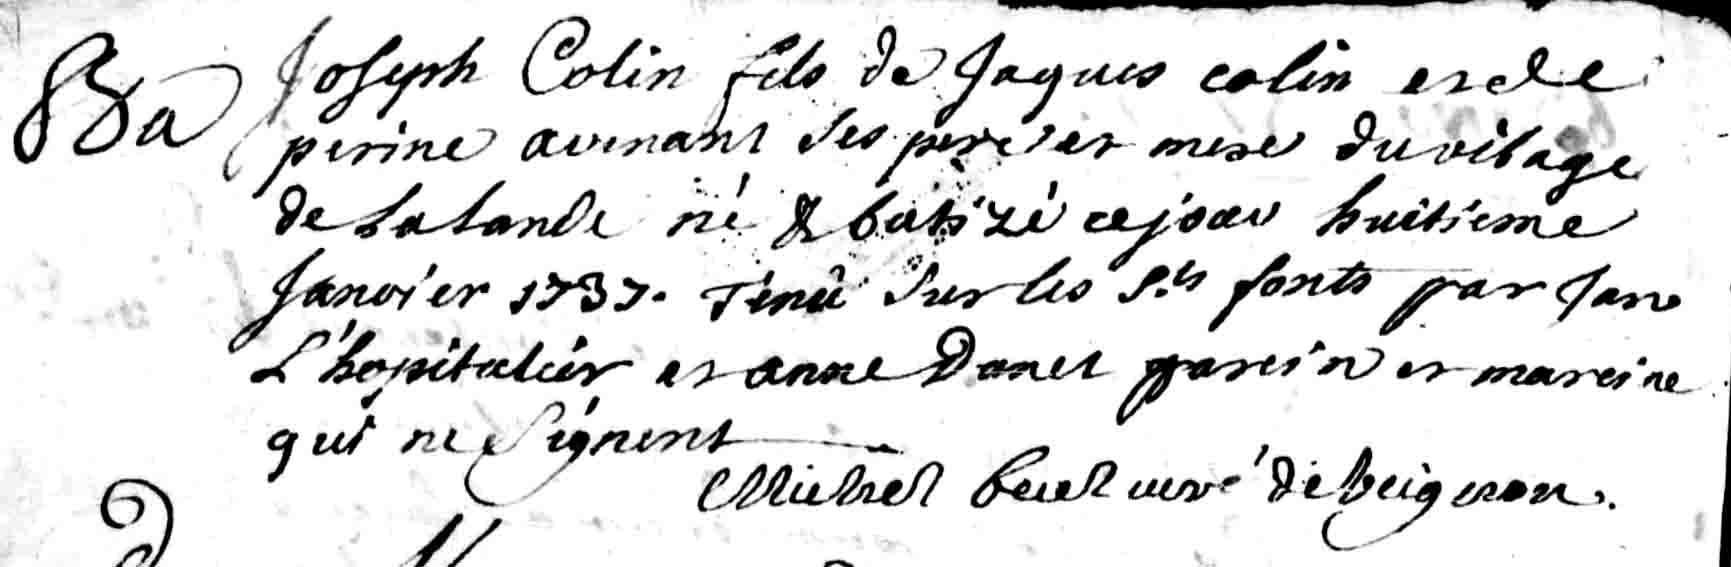 Ba
Joseph Colin fils de Jaques colin et de
perine avenant ses pere et mere du vilage
de la lande né & batizé ce jour huitieme
Janvier 1737. Tenû sur les Sts fonts par Jan
L'hopitalier et anne Danet parein et mareine
qui ne signent
Michel curé de beignon.